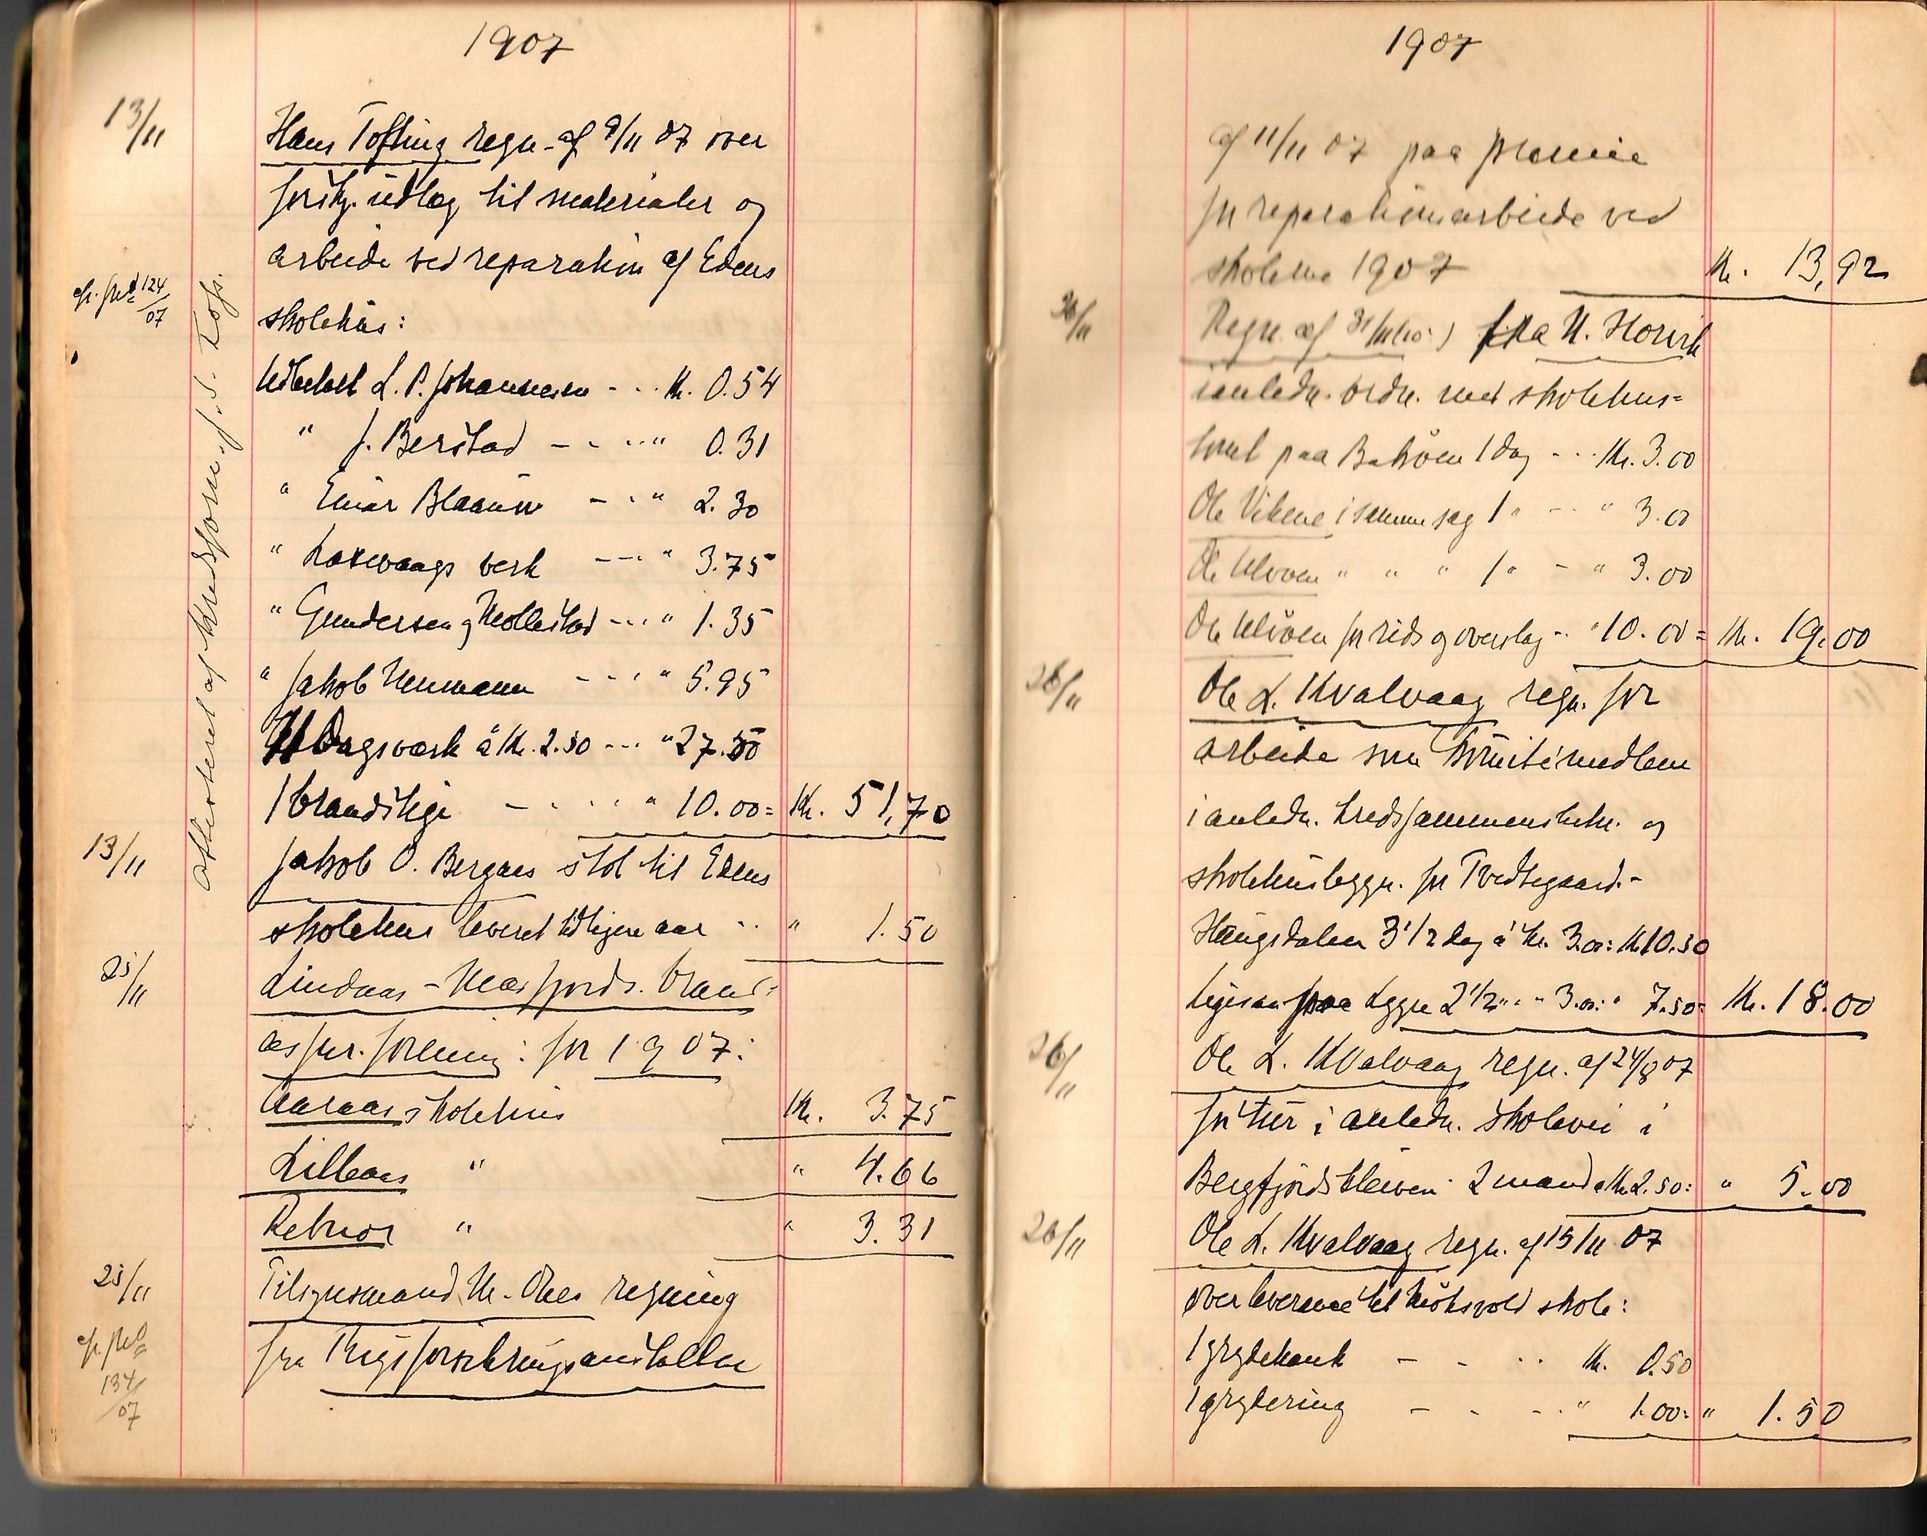 1907
13/11
Hans Tofting regn. af 9/11 07 over
forskj. udlæg til materialer og
arbeide ved reparation af Edens
cfr. skr. 124/07
skolehus:
Udbetalt L. P. Johannesen - - - Kr. 0.54
" J. Berstad - - - " 0.31
" Einar Blaauw - - " 2.30
" Laxevaags verk - - - " 3.75
" Gundersen & Mollestad - - - " 1.35
" Jakob Neumann - - - " 5.95
11 Dagsværk á Kr. 2.50 - - - " 27.50
1 brandstige - - - - " 10.00 = Kr. 51,70
Attesteret af kredsform. J. S. Tofs.
13/11
Jakob O. Bergaas stol til Edens
skolehus leveret tidligere aar - - " 1.50
25/11
Lindaas - Masfjords. brand-
assur. forening: for 1907:
Aaraas skolehus Kr. 3.75
Lilleaas " " 4.66
Rebnor " " 3.31
25/11
Tilsynsmand N. Ones regning
cfr. skr. 134/07
fra Rigsforsikringsanstalten
1907
af 11/11 07 paa præmie
for reparationsarbeide ved
skolerne 1907 Kr. 13,92
26/11
Regn. af 31/ fra N. Horvik
i anledn. ordn. med skolehus-
tomt paa Bakøen 1 dag - - - Kr. 3.00
Ole Vikene i samme sag 1 " - - " 3.00
Ole Ulvøen " " " 1 " - " 3.00
Ole Ulvøen for rids og overslag - - " 10.00 = Kr. 19.00
26/11
Ole L. Kvalvaag regn. for
arbeide som komitémedlem
i anledn. kredssammenslutn. og
skolehusbyggn. for Tvedtegaard.-
Haugsdalen 3 1/2 dag á Kr. 3.00: Kr. 10.50
Ligesaa paa Lygre 2 1/2 " " " 3.00: " 7.50: Kr. 18.00
26/11
Ole L. Kvalvaag regn. af 24/8 07
for tur i anledn. skolevei i
Bergfjordskleiven 2 mand á Kr. 2.50: " 5.00
26/11
Ole L. Kvalvaag regn. af 15/11 07
over leverance til Kroksvold skole:
1 grydehank - - - - Kr. 0.50
1 grydering - - - - " 1.00: " 1.50